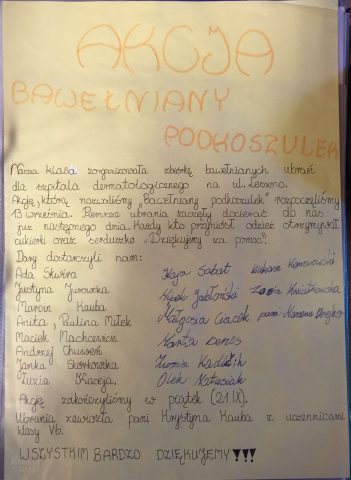 AKCJA
BAWEŁNIANY
PODKOSZULEK
Nasza klasa zorganizowała zbiórkę bawełnianych ubrań
dla szpitala dermatologicznego na ul. Leszno.
Akcję, którą nazwaliśmy „Bawełniany podkoszulek" rozpoczęliśmy
13 września. Pierwsze ubrania zaczęły docierać do nas
już następnego dnia. Każdy kto przyniósł odzież otrzymywał
cukierki oraz serduszko „Dziękujemy za pomoc".
Dary dostarczyli nam:
Ada Skwira Kaja Sabat Łukasz
Justyna Jurowska Jabłoński Zosia Kwiatkowska
Marcin Kauba Małgosia pani
Anita, Paulina Miłek Marta
Maciek Machcewicz
Andrzej Olek Matusiak
Janka
Zuzia
Akcję zakończyliśmy w piątek (21.IX).
Ubrania zawiozła pani Krystyna Kauba z uczennicami
klasy Vb.
WSZYSTKIM BARDZO DZIĘKUJEMY!!!